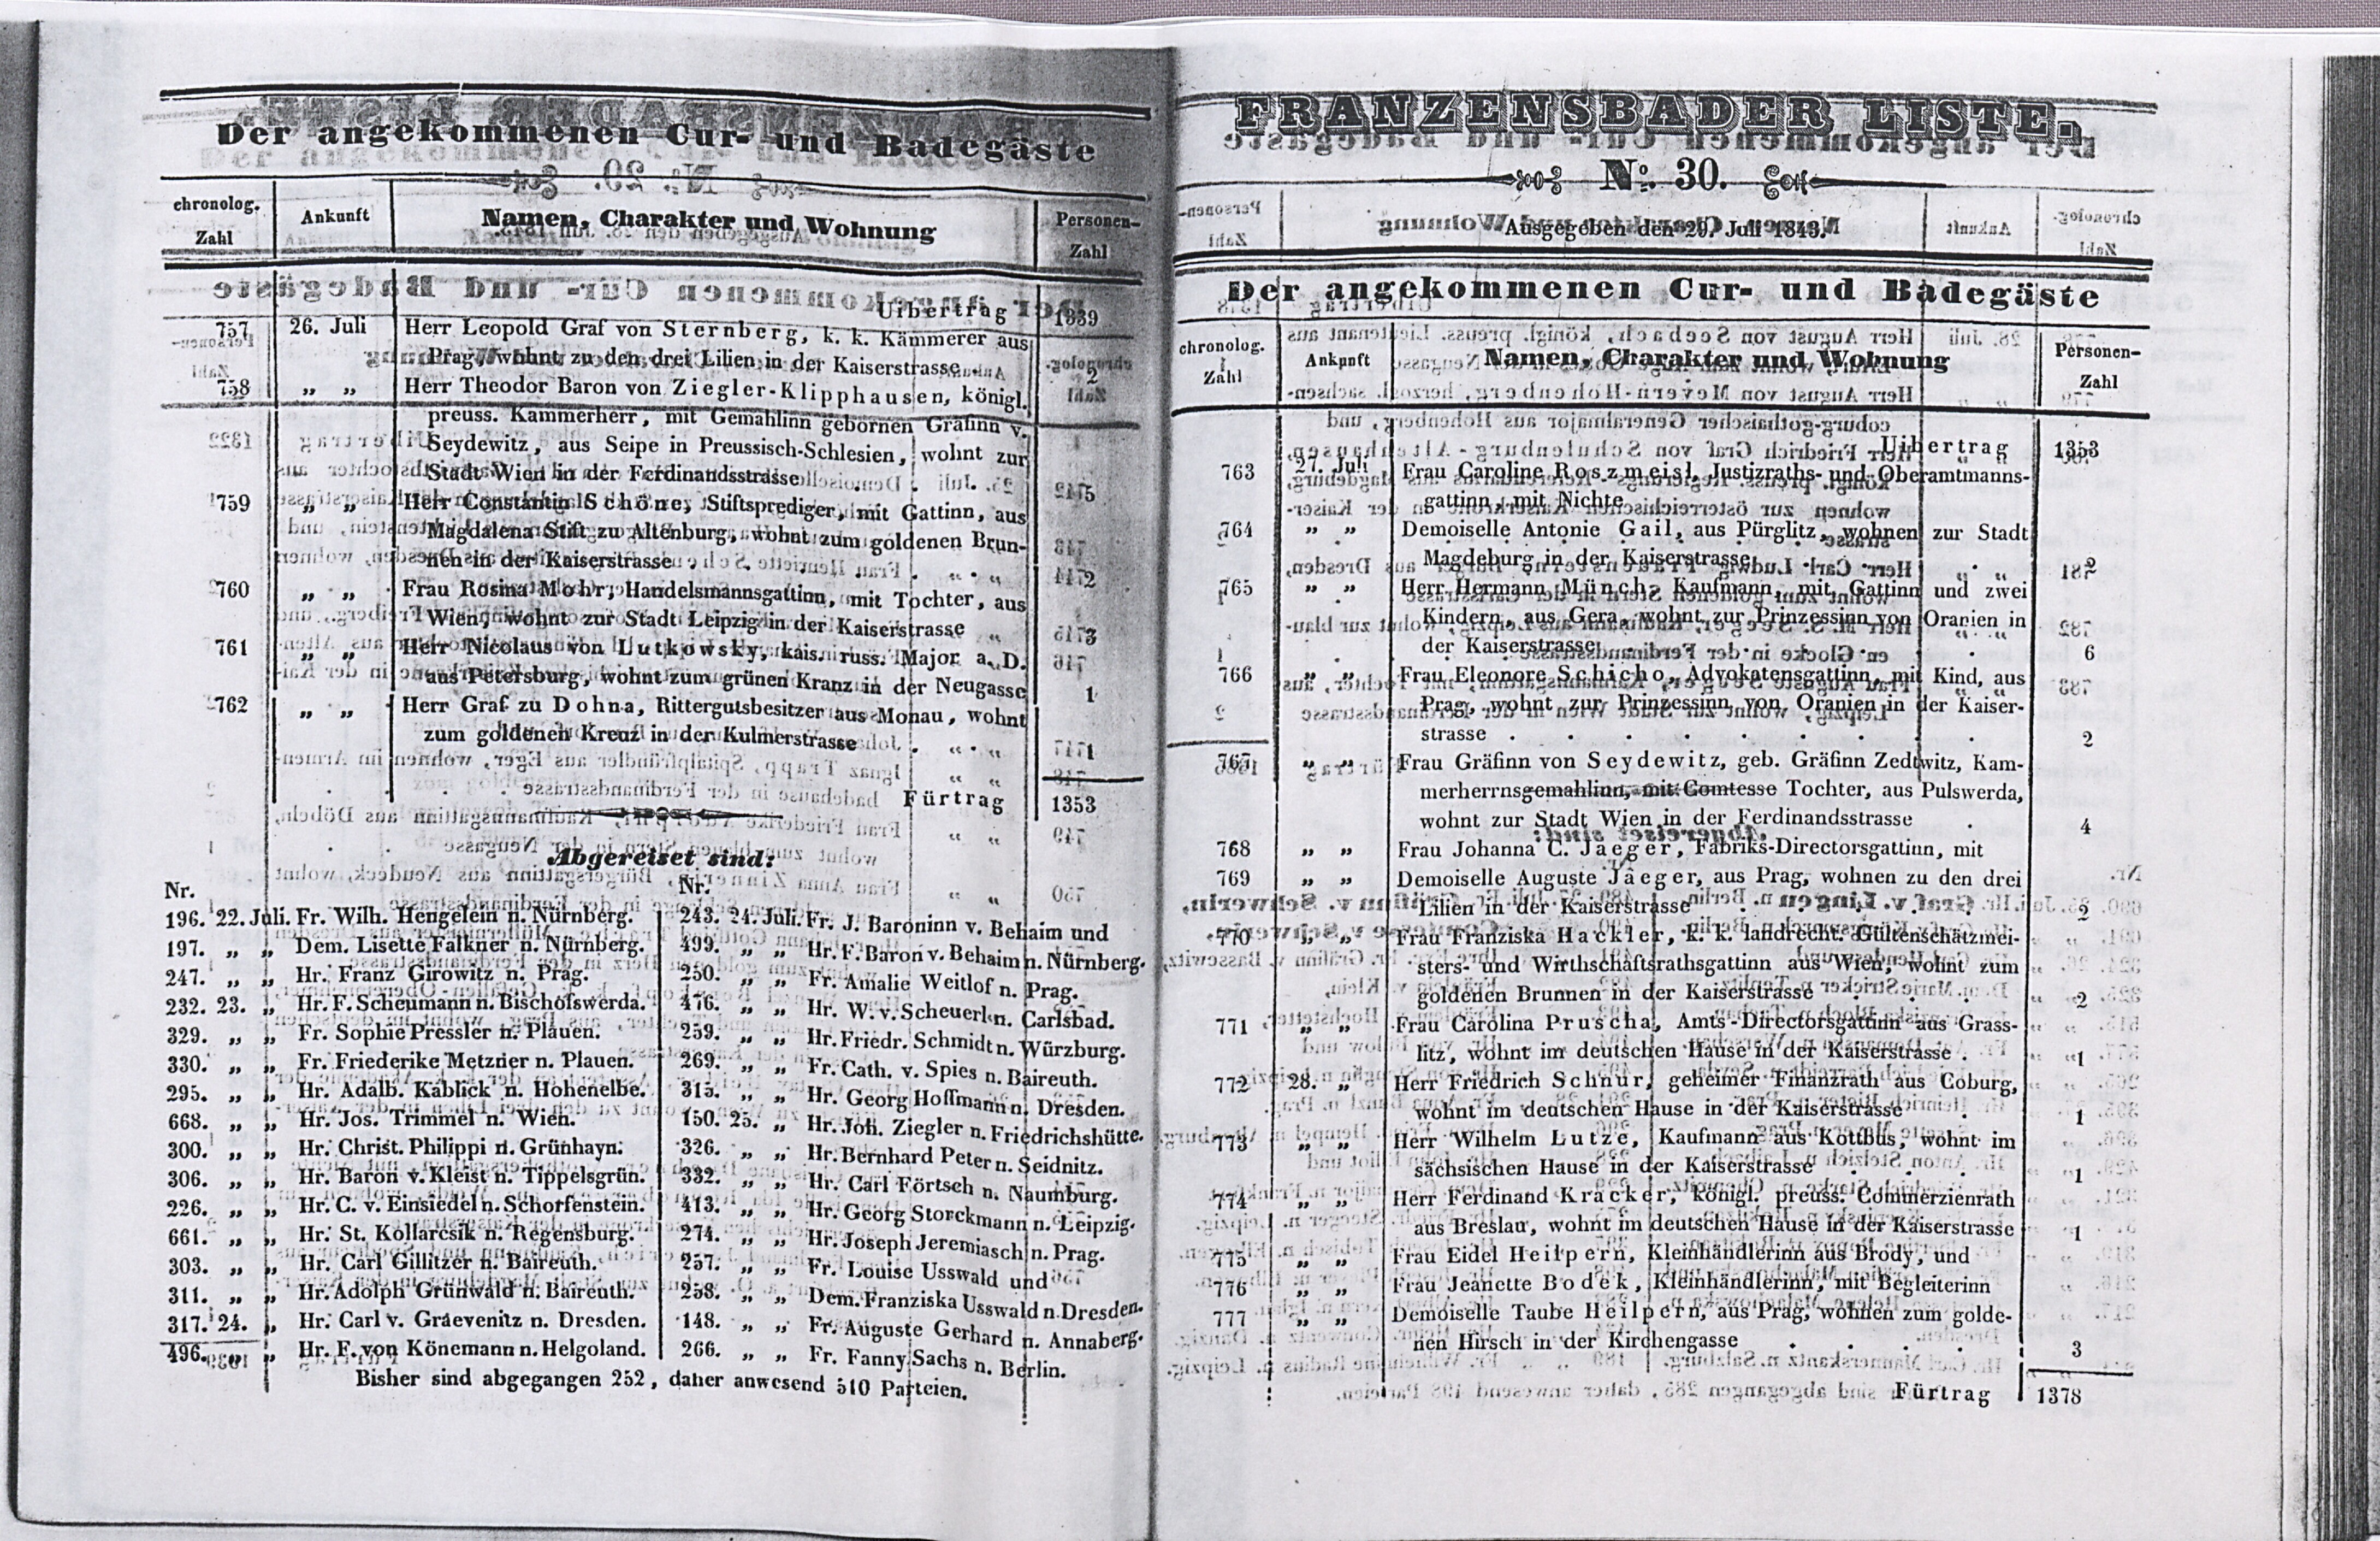 Der angekommenen Cur- und Badegäste
chronolog. Zahl
Ankunft
Namen, Charakter und Wohnung
Personen- Zahl
Uibertrag 1339
757 26. Juli Herr Leopold Graf von Sternberg, k. k. Kämmerer aus
Prag, wohnt zu den drei Lilien in der Kaiserstrasse . 2
758 „ „ Herr Theodor Baron von Ziegler-Klipphausen, königl.
preuss. Kammerherr, mit Gemahlinn gebornen Gräfinn v.
Seydewitz, aus Seipe in Preussisch-Schlesien, wohnt zur
Stadt Wien in der Ferdinandsstrasse 5
759 „ „ Herr Constantin Schöne, Stiftsprediger, mit Gattinn, aus
Magdalena Stift zu Altenburg, wohnt zum goldenen Brun-
nen in der Kaiserstrasse 2
760 „ „ Frau Rosina Mohr, Handelsmannsgattinn, mit Tochter, aus
Wien, wohnt zur Stadt Leipzig in der Kaiserstrasse 3
761 „ „ Herr Nicolaus von Lutkowsky, kais. russ. Major a. D.
aus Petersburg, wohnt zum grünen Kranz in der Neugasse 1
762 „ „ Herr Graf zu Dohna, Rittergutsbesitzer aus Monau, wohnt
zum goldenen Kreuz in der Kulmerstrasse . . 1
Fürtrag 1353
Abgereiset sind:
Nr.
196. 22. Juli. Fr. Wilh. Hengelein n. Nürnberg.
197. „ „ Dem. Lisette Falkner n. Nürnberg.
247. „ „ Hr. Franz Girowitz n. Prag.
232. 23. „ Hr. F. Scheumann n. Bischofswerda.
329. „ „ Fr. Sophie Pressler n. Plauen.
330. „ „ Fr. Friederike Metzner n. Plauen.
295. „ „ Hr. Adalb. Kablick n. Hohenelbe.
668. „ „ Hr. Jos. Trimmel n. Wien.
300. „ „ Hr. Christ. Philippi n. Grünhayn.
306. „ „ Hr. Baron v. Kleist n. Tippelsgrün.
226. „ „ Hr. C. v. Einsiedel n. Schorfenstein.
661. „ „ Hr. St. Kollarcsik n. Regensburg.
303. „ „ Hr. Carl Gillitzer n. Baireuth.
311. „ „ Hr. Adolph Grünwald n. Baireuth.
317. 24. „ Hr. Carl v. Graevenitz n. Dresden.
496. „ „ Hr. F. von Könemann n. Helgoland.
Nr.
243. 24. Juli. Fr. J. Baroninn v. Behaim und
499. „ „ Hr. F. Baron v. Behaim n. Nürnberg.
250. „ „ Fr. Amalie Weitlof n. Prag.
476. „ „ Hr. W. v. Scheuerl n. Carlsbad.
259. „ „ Hr. Friedr. Schmidt n. Würzburg.
269. „ „ Fr. Cath. v. Spies n. Baireuth.
315. „ „ Hr. Georg Hoffmann n. Dresden.
150. 25. „ Hr. Joh. Ziegler n. Friedrichshütte.
326. „ „ Hr. Bernhard Peter n. Seidnitz.
332. „ „ Hr. Carl Förtsch n. Naumburg.
413. „ „ Hr. Georg Storckmann n. Leipzig.
274. „ „ Hr. Joseph Jeremiasch n. Prag.
257. „ „ Fr. Louise Usswald und
258. „ „ Dem. Franziska Usswald n. Dresden.
148. „ „ Fr. Auguste Gerhard n. Annaberg.
266. „ „ Fr. Fanny Sachs n. Berlin.
Bisher sind abgegangen 252, daher anwesend 510 Parteien.
FRANZENSBADER LISTE.
No. 30.
Ausgegeben den 29. Juli 1843.
Der angekommenen Cur- und Badegäste
chronolog. Zahl
Ankunft
Namen, Charakter und Wohnung
Personen- Zahl
Uibertrag 1353
763 27. Juli Frau Caroline Roszmeisl, Justizraths- und Oberamtmanns-
gattinn, mit Nichte
764 „ „ Demoiselle Antonie Gail, aus Pürglitz, wohnen zur Stadt
Magdeburg in der Kaiserstrasse 2
765 „ „ Herr Hermann Münch, Kaufmann, mit Gattinn und zwei
Kindern, aus Gera, wohnt zur Prinzessinn von Oranien in
der Kaiserstrasse 6
766 „ „ Frau Eleonore Schicho, Advokatensgattinn, mit Kind, aus
Prag, wohnt zur Prinzessinn von Oranien in der Kaiser-
strasse . . . . . . . 2
767 „ „ Frau Gräfinn von Seydewitz, geb. Gräfinn Zedtwitz, Kam-
merherrnsgemahlinn, mit Comtesse Tochter, aus Pulswerda,
wohnt zur Stadt Wien in der Ferdinandsstrasse . 4
768 „ „ Frau Johanna C. Jaeger, Fabriks-Directorsgattinn, mit
769 „ „ Demoiselle Auguste Jaeger, aus Prag, wohnen zu den drei
Lilien in der Kaiserstrasse . . . 2
770 „ „ Frau Franziska Hackler, k. k. landrechtl. Gültenschätzmei-
sters- und Wirthschaftsrathsgattinn aus Wien, wohnt zum
goldenen Brunnen in der Kaiserstrasse . . . 2
771 „ „ Frau Carolina Pruscha, Amts-Directorsgattinn aus Grass-
litz, wohnt im deutschen Hause in der Kaiserstrasse . 1
772 28. „ Herr Friedrich Schnür, geheimer Finanzrath aus Coburg,
wohnt im deutschen Hause in der Kaiserstrasse . 1
773 „ „ Herr Wilhelm Lutze, Kaufmann aus Kottbus, wohnt im
sächsischen Hause in der Kaiserstrasse . . . 1
774 „ „ Herr Ferdinand Kracker, königl. preuss. Commerzienrath
aus Breslau, wohnt im deutschen Hause in der Kaiserstrasse 1
775 „ „ Frau Eidel Heilpern, Kleinhändlerinn aus Brody, und
776 „ „ Frau Jeanette Bodek, Kleinhändlerinn, mit Begleiterinn
777 „ „ Demoiselle Taube Heilpern, aus Prag, wohnen zum golde-
nen Hirsch in der Kirchengasse . . . . 3
Fürtrag 1378